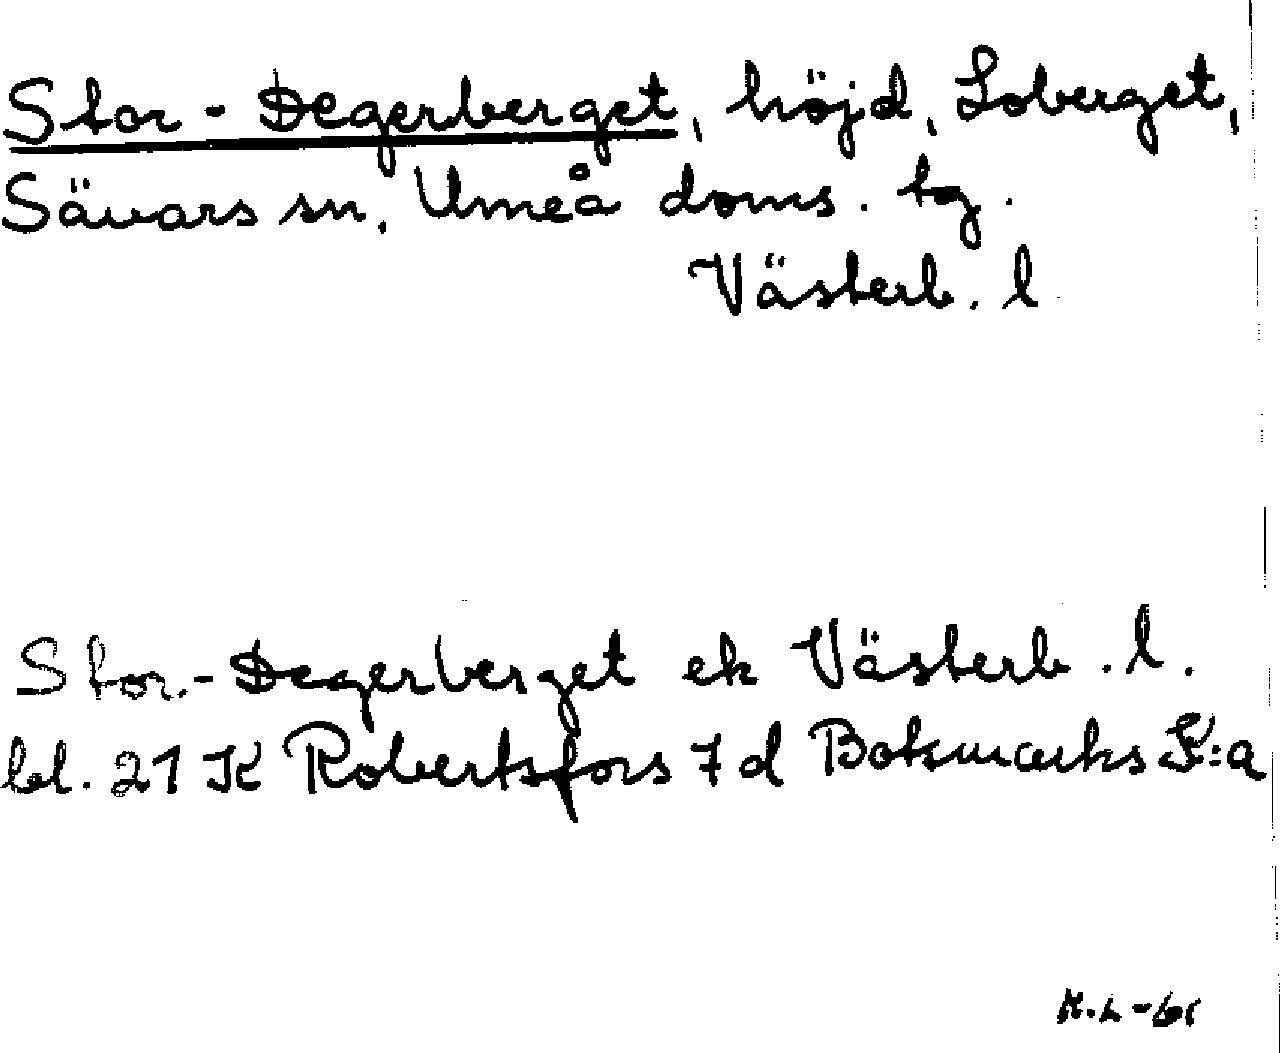 Stor-Degerberget, höjd, Loberget,
Sävars sn, Umeå doms. tg.
Västerb. l
Stor.-Degerberget ek Västerb. l.
bl. 21 K Robertsfors 7 d Botsmarks S:a
K.L-61